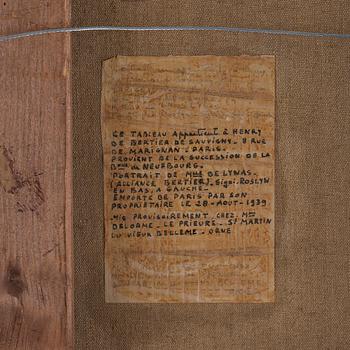 CE TABLEAU Appartient à HENRY
DE BERTIER DE SAUVIGNY. 8 RUE
DE MARIGNAN. PARIS.
PROVIENT DE LA SUCCESSION DE LA
Bnne de NEUFBOURG.
PORTRAIT DE MME DE LYNAS.
(ALLIANCE BERTIER). Signé. ROSLYN
EN BAS, A GAUCHE.
EMPORTE DE PARIS PAR SON
PROPRIETAIRE LE 28-AOUT-1939
MIS PROVISOIREMENT. CHEZ. MME
DELORME. LE PRIEURE. ST MARTIN
DU VIEUX BELLEME. ORNE